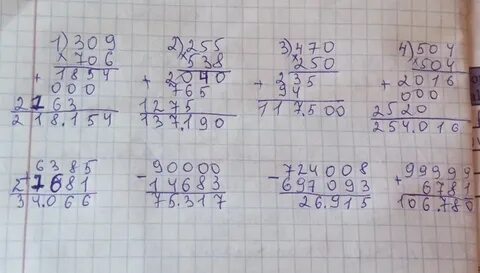 1) 309
× 706
+ 1854
000
2163
218.154
2) 255
× 538
+ 2040
765
1275
137.190
3) 470
× 250
+ 235
94
117.500
4) 504
× 504
+ 2016
000
2520
254.016
+ 6385
27681
34.066
- 90000
14683
75.317
- 724008
697093
26.915
+ 99999
6781
106.780